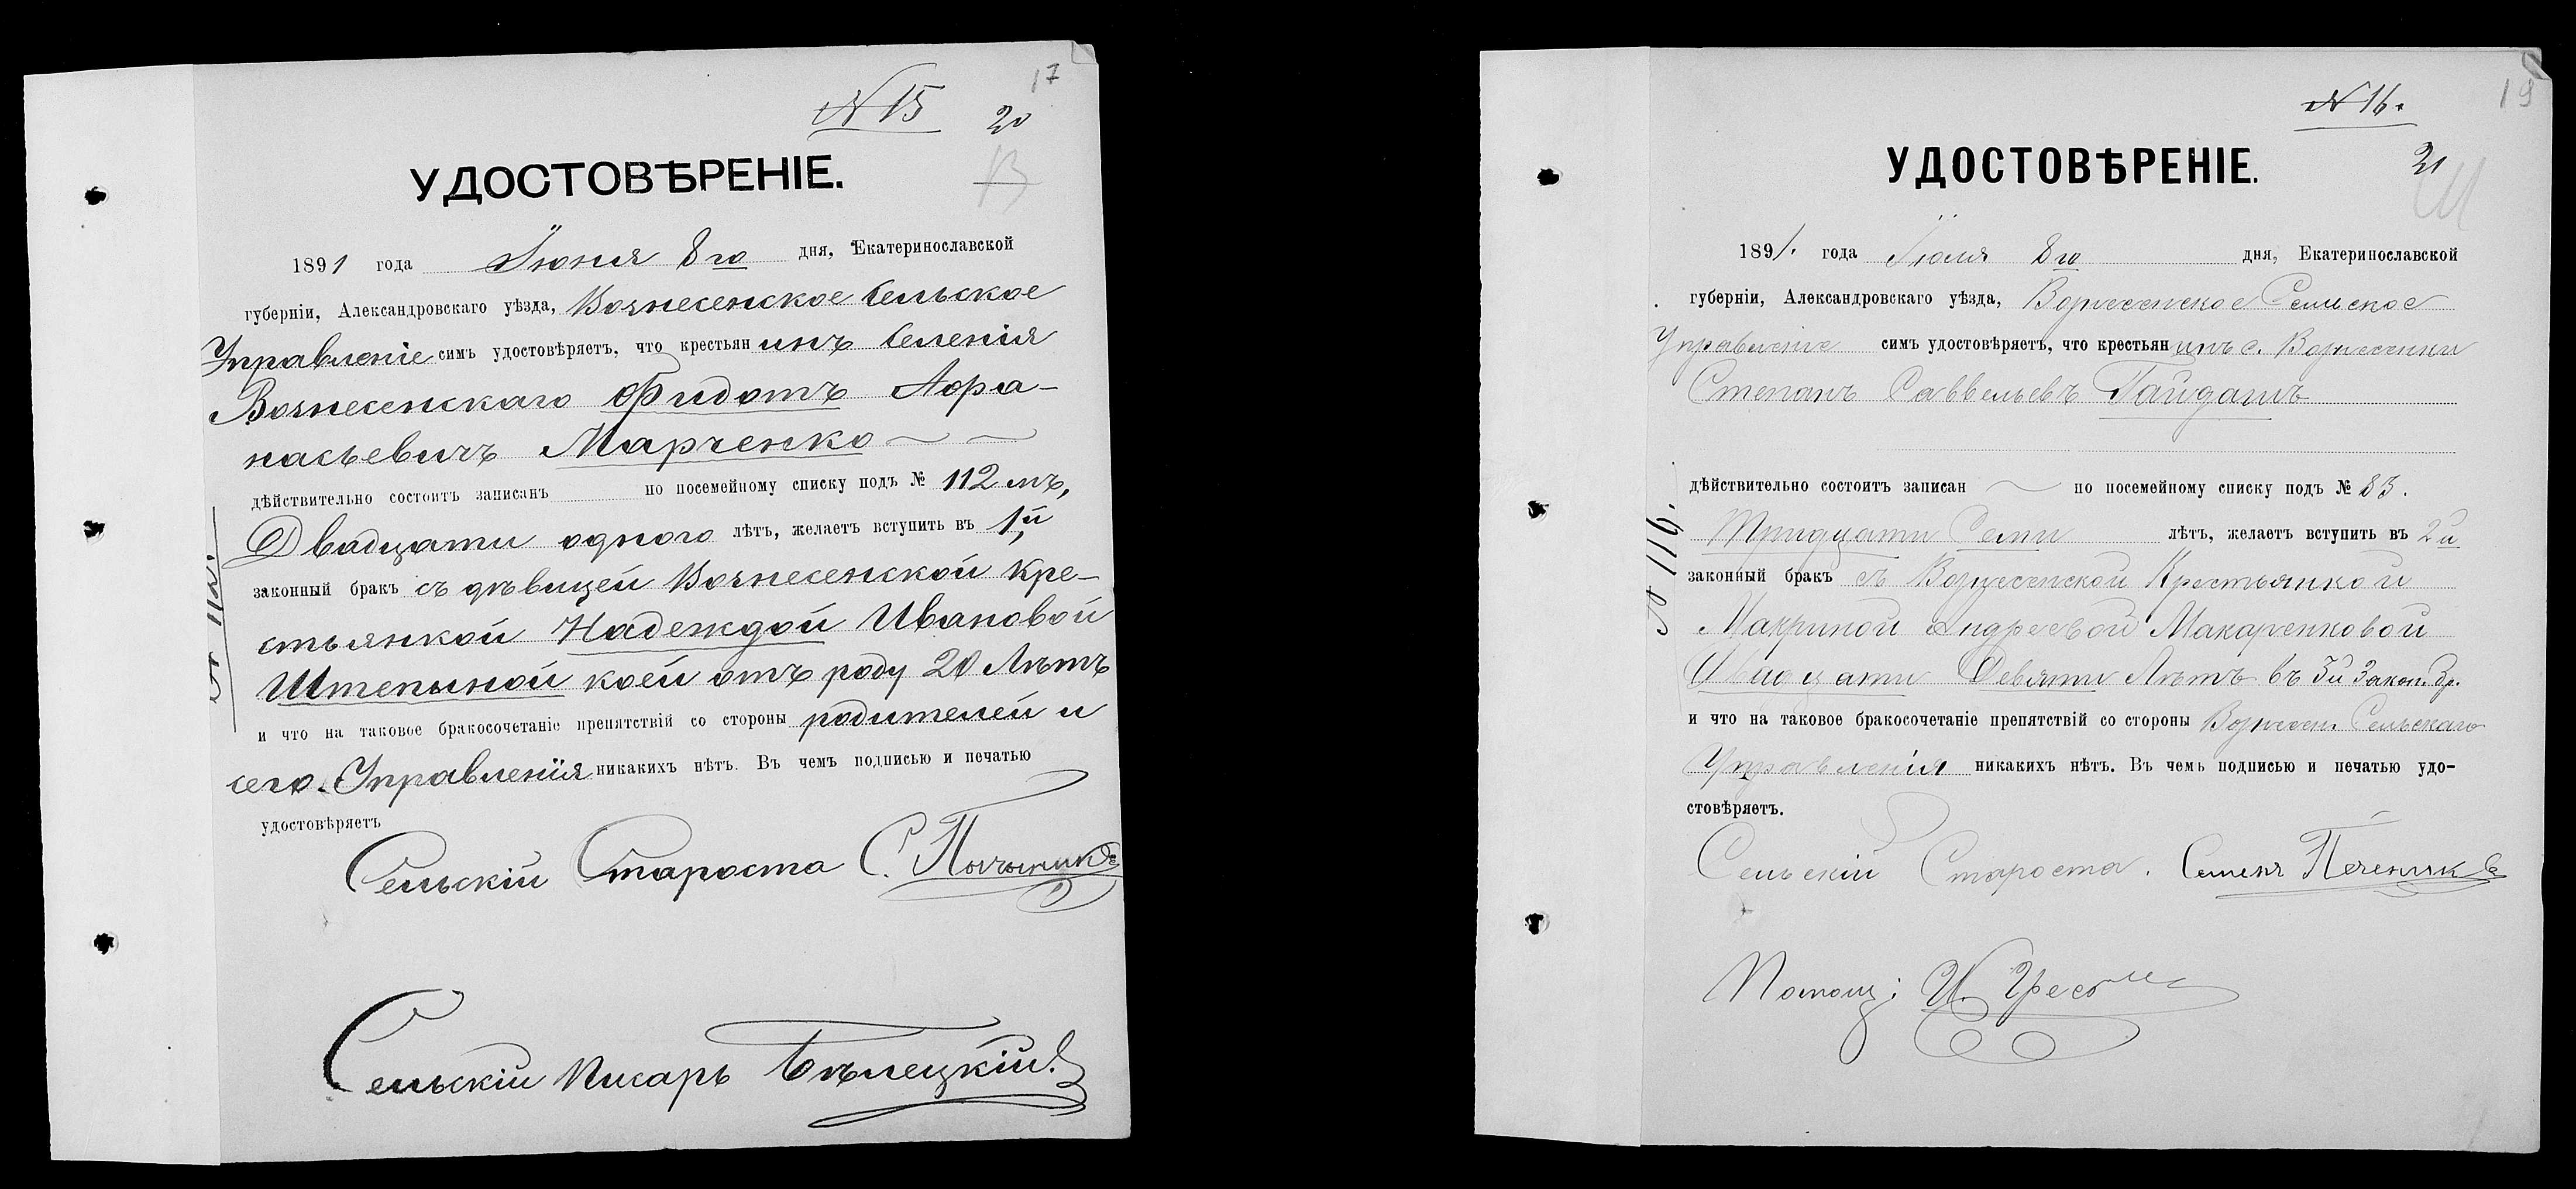 17
№ 15
20
13
УДОСТОВѢРЕНІЕ.
1891 года Іюня 8го дня, Екатеринославской
губерніи, Александровскаго уѣзда, Вознесенское Сельское
Управленіе симъ удостовѣряетъ, что крестьянинъ Селенія
Вознесенскаго Фидотъ Афа-
насьевичъ Марченко
дѣйствительно состоитъ записанъ по посемейному списку подъ № 112 мъ,
Двадцати одного лѣтъ, желаетъ вступить въ 1й
законный бракъ съ дѣвицей Вознесенской кре-
стьянкой Надеждой Ивановой
Штепыной коей отъ роду 20 Лѣтъ
и что на таковое бракосочетаніе препятствій со стороны родителей и
сего Управленія никакихъ нѣтъ. Въ чемъ подписью и печатью
удостовѣряетъ
Сельскій Староста С.
Сельскій Писарь Бѣлецкій.
19
№ 16.
21
УДОСТОВѢРЕНІЕ.
1891. года Іюля 8го дня, Екатеринославской
губерніи, Александровскаго уѣзда, Вознесенское Сельское
Управленіе симъ удостовѣряетъ, что крестьянинъ с. Вознесенки
Степанъ Саввельевъ Гайдашъ
дѣйствительно состоитъ записан по посемейному списку подъ № 83.
Тридцати Семи лѣтъ, желаетъ вступить въ 2й
законный бракъ съ Вознесенской Крестьянкой
Макриной Андреевой Макаренковой
Двадцати Девяти Лѣтъ въ 3й Закон. бр.
и что на таковое бракосочетаніе препятствій со стороны Вознесен. Сельскаго
Управленія никакихъ нѣтъ. Въ чемъ подписью и печатью удо-
стовѣряетъ.
Сельскій Староста. Семенъ Печенюкъ
Помощ: И.
№ 116.